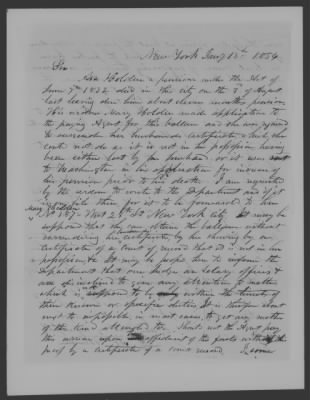 New York Jany 12th 1854
Sir
Asa Holden a pension under the Act of
June 7th 1832 died in this city on the 3d of August
last leaving due him about eleven months pension.
His widow Mary Holden made application to
the paying Agent for this balance and she was required
to surrender her husbands certificate & this she
could not do as it is not in her possession having
been either lost by him or it was sent
to Washington in his application for increase of
his pension prior to his death. I am requested
by the widow to write to the Department and if
on file there for it to be forwarded to her
Mary Holden
No 187 West 2 St New York city. It may be
supposed that she can obtain the balance without
surrendering her certificate by her showing by an
certificate of a Court of record that it is not in her
possession & it may be proper here to inform the
Department that our Judges are salary officers &
are disinclined to give any attention to matter
which is not supposed to be within the limits of
their or specific duties. It is therefore almost
next to impossible in most cases, to get any matter
of this kind attended to. should not the Agent pay
this arrear upon affidavit of the facts without the
proof by a certificate of a court record. I